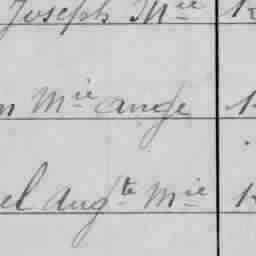 Joseph Mie
n Mie ange
el Augte Mie